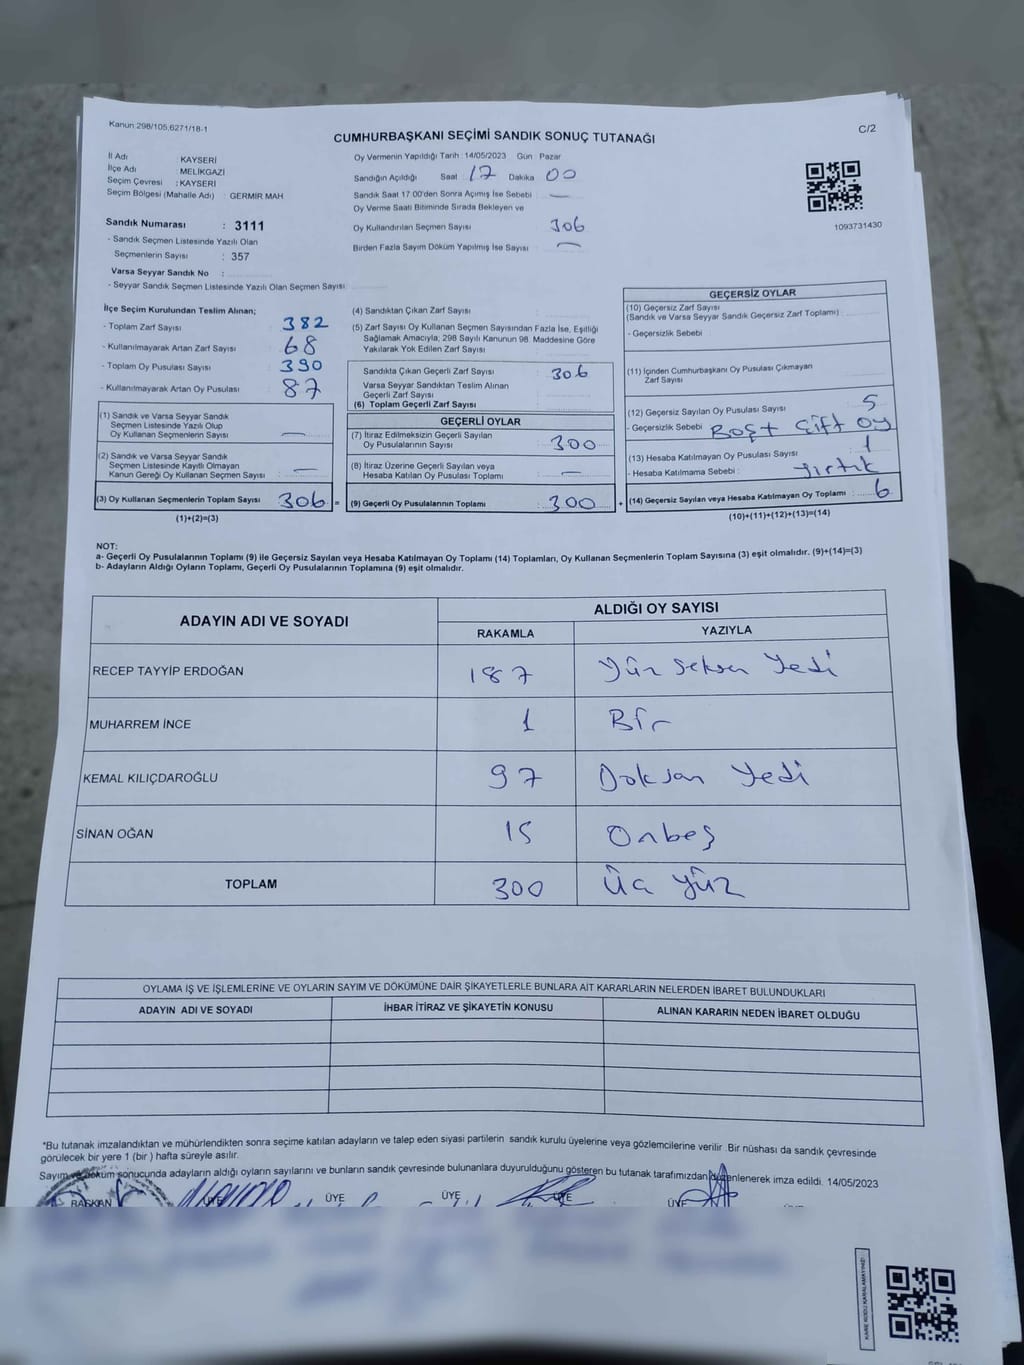 Kanun:298/105,6271/18-1
C/2
CUMHURBAŞKANI SEÇİMİ SANDIK SONUÇ TUTANAĞI
İl Adı : KAYSERİ
İlçe Adı : MELİKGAZİ
Seçim Çevresi : KAYSERİ
Seçim Bölgesi (Mahalle Adı) : GERMİR MAH
Sandık Numarası : 3111
- Sandık Seçmen Listesinde Yazılı Olan
Seçmenlerin Sayısı : 357
Varsa Seyyar Sandık No :
- Seyyar Sandık Seçmen Listesinde Yazılı Olan Seçmen Sayısı:
Oy Vermenin Yapıldığı Tarih :14/05/2023 Gün Pazar
Sandığın Açıldığı Saat 17 Dakika 00
Sandık Saat 17.00'den Sonra Açımış İse Sebebi : —
Oy Verme Saati Bitiminde Sırada Bekleyen ve
Oy Kullandırılan Seçmen Sayısı : 306
Birden Fazla Sayım Döküm Yapılmış İse Sayısı : —
1093731430
İlçe Seçim Kurulundan Teslim Alınan;
- Toplam Zarf Sayısı : 382
- Kullanılmayarak Artan Zarf Sayısı : 68
- Toplam Oy Pusulası Sayısı : 390
- Kullanılmayarak Artan Oy Pusulası : 87
(1) Sandık ve Varsa Seyyar Sandık
Seçmen Listesinde Yazılı Olup
Oy Kullanan Seçmenlerin Sayısı : —
(2) Sandık ve Varsa Seyyar Sandık
Seçmen Listesinde Kayıtlı Olmayan
Kanun Gereği Oy Kullanan Seçmen Sayısı : —
(3) Oy Kullanan Seçmenlerin Toplam Sayısı : 306 =
(1)+(2)=(3)
(4) Sandıktan Çıkan Zarf Sayısı :
(5) Zarf Sayısı Oy Kullanan Seçmen Sayısından Fazla İse, Eşitliği
Sağlamak Amacıyla, 298 Sayılı Kanunun 98. Maddesine Göre
Yakılarak Yok Edilen Zarf Sayısı :
Sandıkta Çıkan Geçerli Zarf Sayısı : 306
Varsa Seyyar Sandıktan Teslim Alınan
Geçerli Zarf Sayısı :
(6) Toplam Geçerli Zarf Sayısı :
GEÇERLİ OYLAR
(7) İtiraz Edilmeksizin Geçerli Sayılan
Oy Pusulalarının Sayısı : 300
(8) İtiraz Üzerine Geçerli Sayılan veya
Hesaba Katılan Oy Pusulası Toplamı : —
(9) Geçerli Oy Pusulalarının Toplamı : 300 +
GEÇERSİZ OYLAR
(10) Geçersiz Zarf Sayısı
(Sandık ve Varsa Seyyar Sandık Geçersiz Zarf Toplamı) :
- Geçersizlik Sebebi :
(11) İçinden Cumhurbaşkanı Oy Pusulası Çıkmayan
Zarf Sayısı :
(12) Geçersiz Sayılan Oy Pusulası Sayısı : 5
- Geçersizlik Sebebi : Boş + Çift oy
(13) Hesaba Katılmayan Oy Pusulası Sayısı : 1
- Hesaba Katılmama Sebebi : Yırtık
(14) Geçersiz Sayılan veya Hesaba Katılmayan Oy Toplamı : 6
(10)+(11)+(12)+(13)=(14)
NOT:
a- Geçerli Oy Pusulalarının Toplamı (9) ile Geçersiz Sayılan veya Hesaba Katılmayan Oy Toplamı (14) Toplamları, Oy Kullanan Seçmenlerin Toplam Sayısına (3) eşit olmalıdır. (9)+(14)=(3)
b- Adayların Aldığı Oyların Toplamı, Geçerli Oy Pusulalarının Toplamına (9) eşit olmalıdır.
ADAYIN ADI VE SOYADI ALDIĞI OY SAYISI
RAKAMLA YAZIYLA
RECEP TAYYİP ERDOĞAN 187 Yüz Seksen Yedi
MUHARREM İNCE 1 Bir
KEMAL KILIÇDAROĞLU 97 Doksan Yedi
SİNAN OĞAN 15 Onbeş
TOPLAM 300 Üç yüz
OYLAMA İŞ VE İŞLEMLERİNE VE OYLARIN SAYIM VE DÖKÜMÜNE DAİR ŞİKAYETLERLE BUNLARA AİT KARARLARIN NELERDEN İBARET BULUNDUKLARI
ADAYIN ADI VE SOYADI İHBAR İTİRAZ VE ŞİKAYETİN KONUSU ALINAN KARARIN NEDEN İBARET OLDUĞU
*Bu tutanak imzalandıktan ve mühürlendikten sonra seçime katılan adayların ve talep eden siyasi partilerin sandık kurulu üyelerine veya gözlemcilerine verilir. Bir nüshası da sandık çevresinde
görülecek bir yere 1 (bir) hafta süreyle asılır.
Sayım ve döküm sonucunda adayların aldığı oyların sayılarını ve bunların sandık çevresinde bulunanlara duyurulduğunu gösteren bu tutanak tarafımızdan düzenlenerek imza edildi. 14/05/2023
BAŞKAN ÜYE ÜYE ÜYE ÜYE ÜYE
KARE KODU KARALAMAYINIZ!